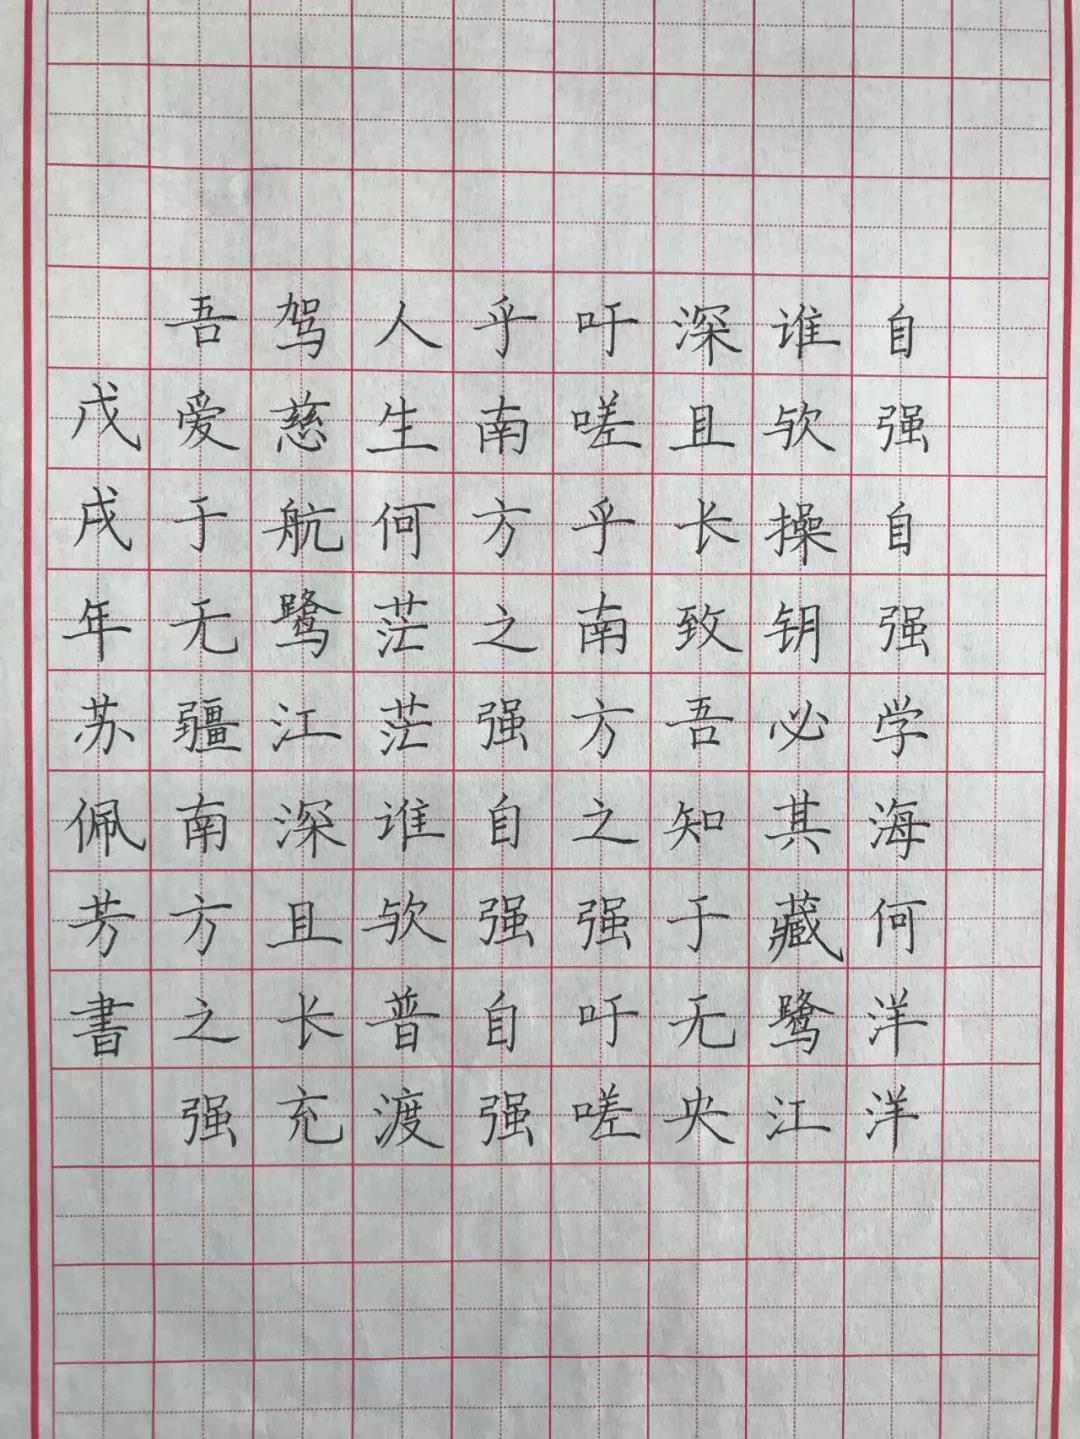 自强自强学海何洋洋
谁欤操钥必其藏鹭江
深且长致吾知于无央
吁嗟乎南方之强吁嗟
乎南方之强自强自强
人生何茫茫谁欤普渡
驾慈航鹭江深且长充
吾爱于无疆南方之强
戊戌年苏佩芳書